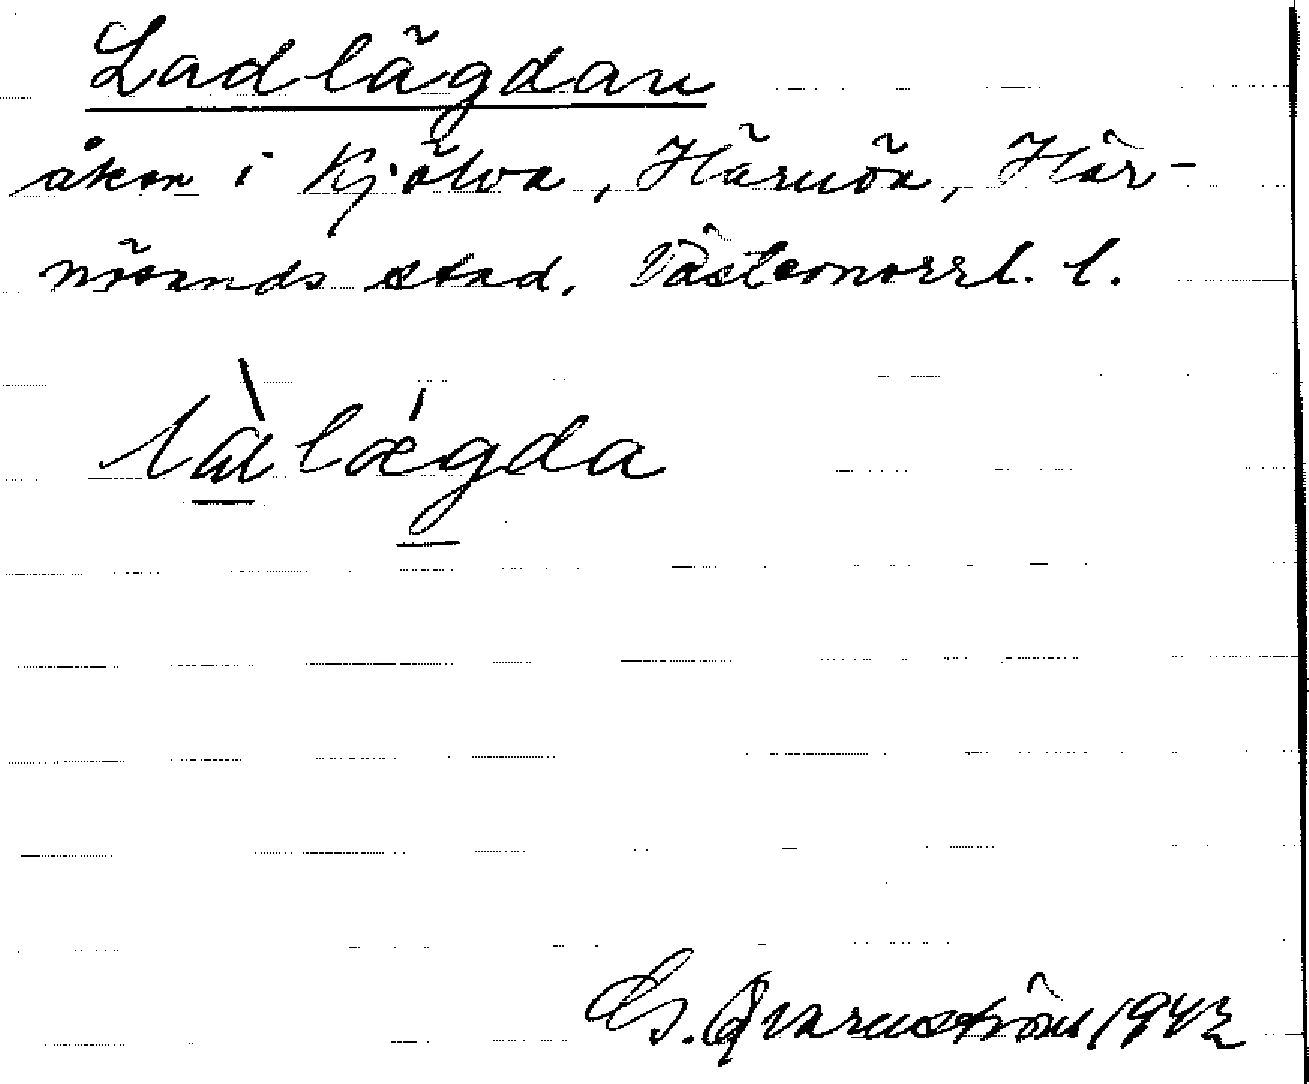 Ladlägdan
åker i Kjölva, Härnön, Här-
nösands stad. Västernorrl. l.
làlǽgda
G. Qvarnström 1943